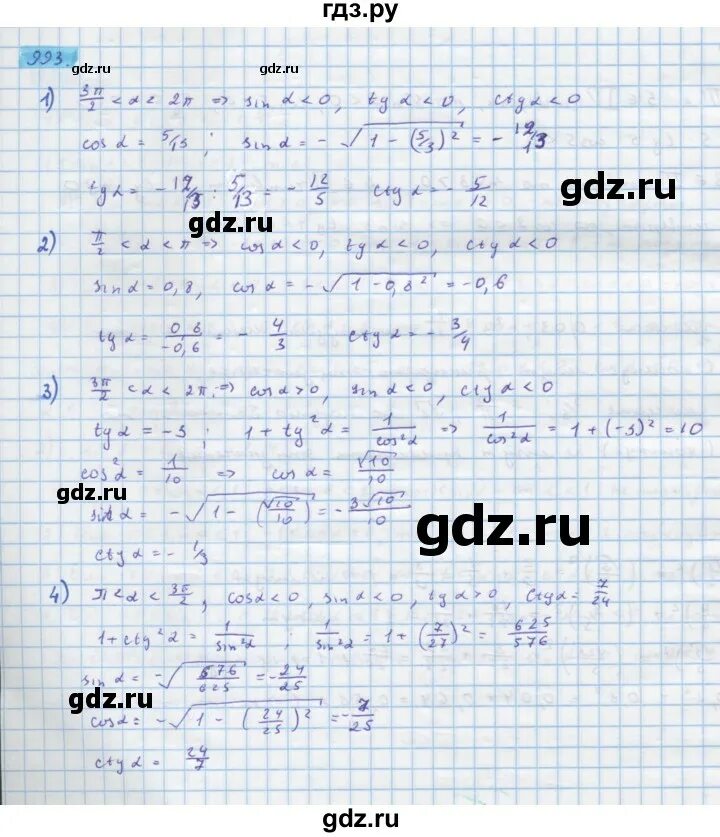 гдз.ру
993.
gdz.ru gdz.ru gdz.ru
1) 3π/2 < α < 2π ⇒ sin α < 0, tg α < 0, ctg α < 0
cos α = 5/13; sin α = -√(1 - (5/3)²) = -12/13
tg α = -12/13 : 5/13 = -12/5 ctg α = -5/12
gdz.ru
gdz.ru
2) π/2 < α < π ⇒ cos α < 0, tg α < 0, ctg α < 0
sin α = 0,8, cos α = -√(1 - 0,8²) = -0,6
tg α = 0,8/-0,6 = -4/3 ctg α = -3/4
gdz.ru
3) 3π/2 < α < 2π ⇒ cos α > 0, sin α < 0, ctg α < 0
tg α = -3; 1 + tg²α = 1/cos²α ⇒ 1/cos²α = 1 + (-3)² = 10
cos²α = 1/10 ⇒ cos α = √10/10
gdz.ru
sin α = -√(1 - (√10/10)²) = -3√10/10
gdz.ru
ctg α = -1/3
4) π < α < 3π/2, cos α < 0, sin α < 0, tg α > 0, ctg α = 7/24
1 + ctg²α = 1/sin²α; 1/sin²α = 1 + (7/27)² = 625/576
gdz.ru
sin α = -√(576/625) = -24/25
gdz.ru
cos α = -√(1 - (24/25)²) = -7/25
gdz.ru
ctg α = 24/7
gdz.ru
gdz.ru